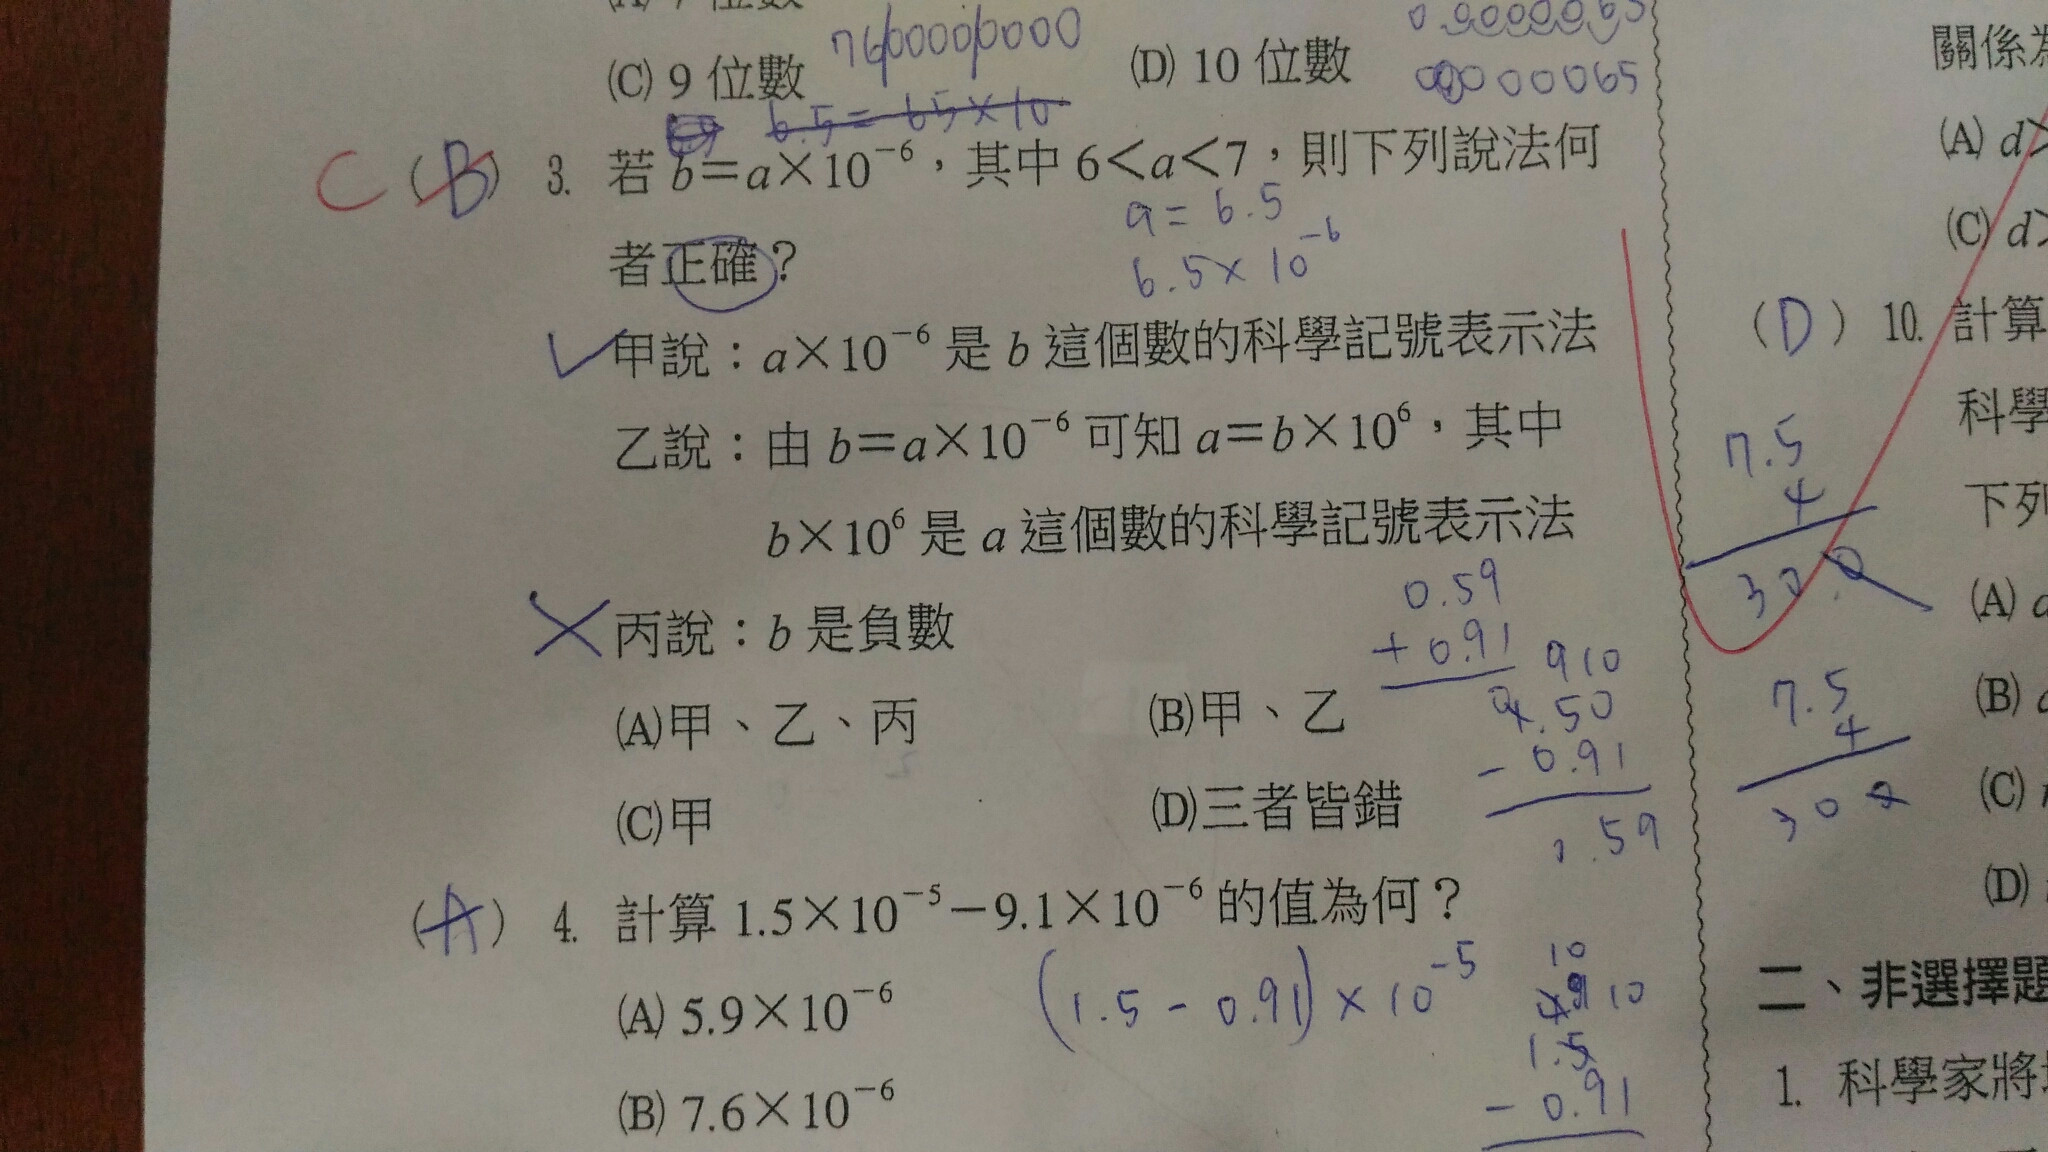 (A) 7 位數
(C) 9 位數 7600000000 (D) 10 位數
00000065
6.5 = 65×10
C (B) 3. 若 b=a×10⁻⁶，其中 6<a<7，則下列說法何
a = 6.5
者正確？
6.5×10⁻⁶
甲說：a×10⁻⁶ 是 b 這個數的科學記號表示法
乙說：由 b=a×10⁻⁶ 可知 a=b×10⁶，其中
b×10⁶ 是 a 這個數的科學記號表示法
丙說：b 是負數
(A)甲、乙、丙 (B)甲、乙
(C)甲 (D)三者皆錯
0.59
+ 0.91
910
.50
- 0.91
.59
(A) 4. 計算 1.5×10⁻⁵－9.1×10⁻⁶ 的值為何？
(1.5 - 0.91) × 10⁻⁵
(A) 5.9×10⁻⁶
(B) 7.6×10⁻⁶
10
10
1.5
- 0.91
關係為
(A) d>
(C) d>
(D) 10. 計算
科學
下列
7.5
4
30.0
(A)
7.5
4
300
(B)
(C)
(D)
二、非選擇題
1. 科學家將